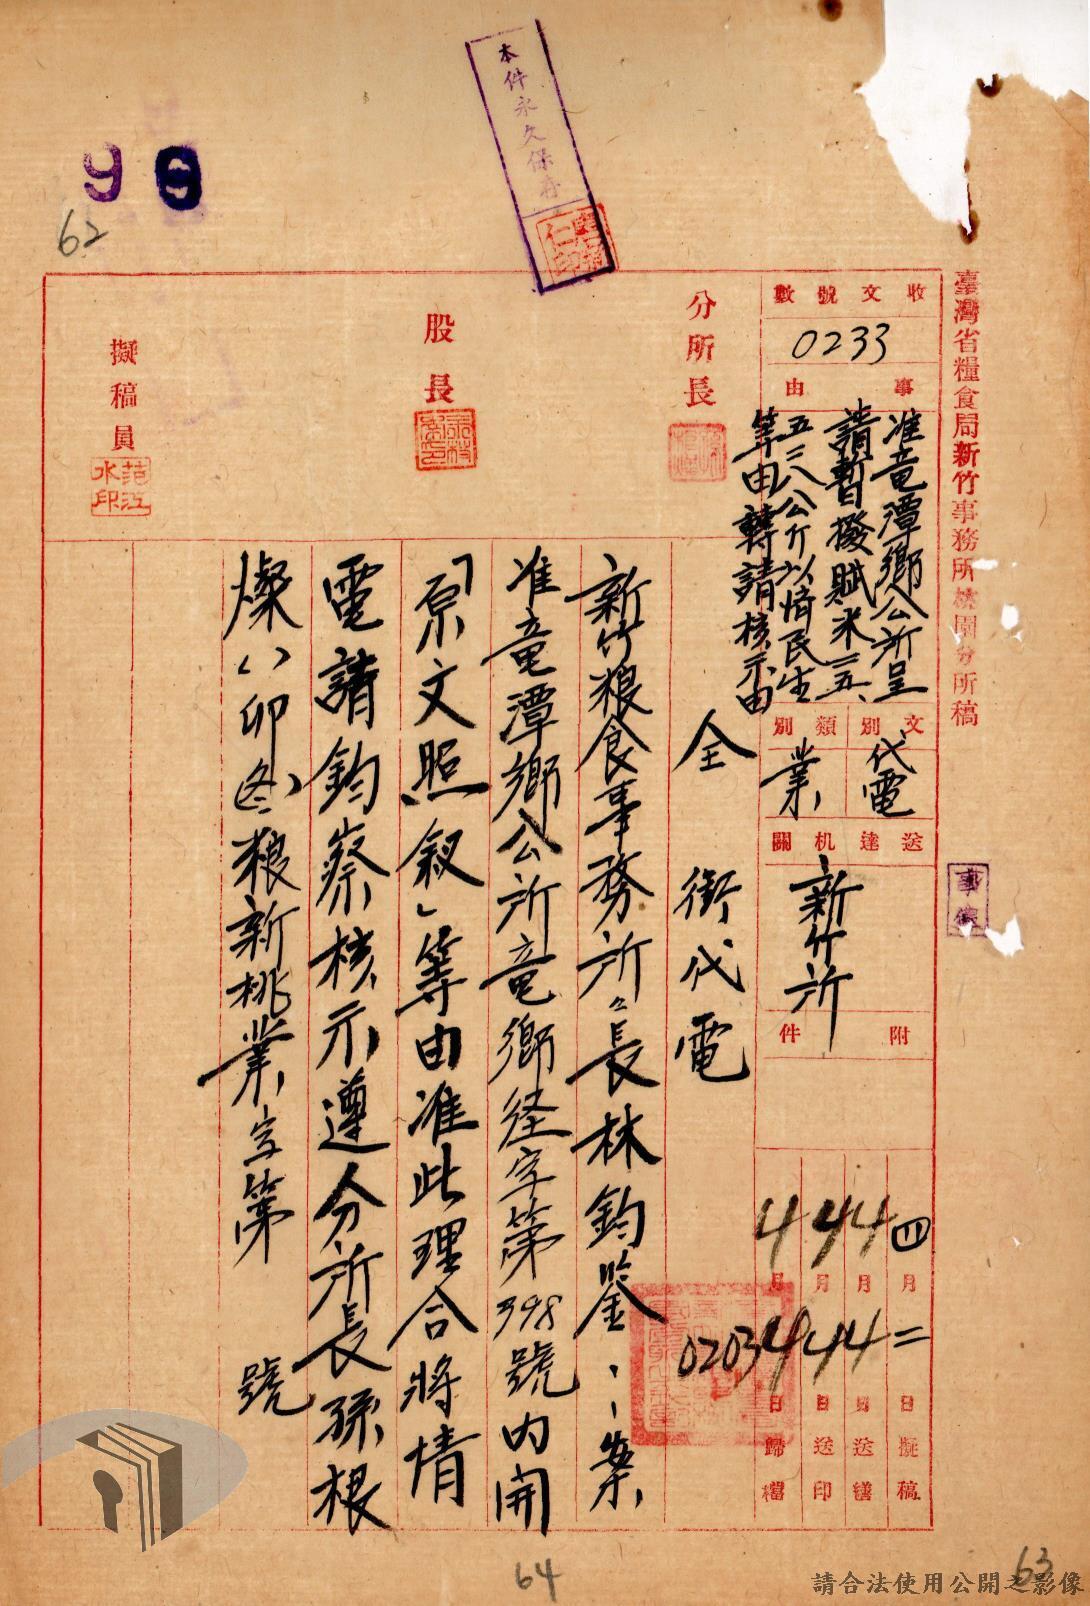 本件永久保存
99
62
臺灣省糧食局新竹事務所桃園分所稿
收文號數
0233
事由
准竜潭鄉公所呈
請暫撥賦米三五、
五三八公斤以濟民生
等由轉請核示由
文別
代電
類別
業
送達机關
新竹所
附件
四月二日擬稿
4月4日送繕
4月4日送印
4月4日歸檔
0203
分所長
股長
擬稿員
范江水印
全銜代電
新竹粮食事務所々長林鈞鑒：案
准竜潭鄉公所竜鄉経字第398號内開
「原文照敘」等由准此理合將情
電請鈞察核示遵分所長孫根
燦(八)卯冬粮新桃業字第　號
64
63
請合法使用公開之影像